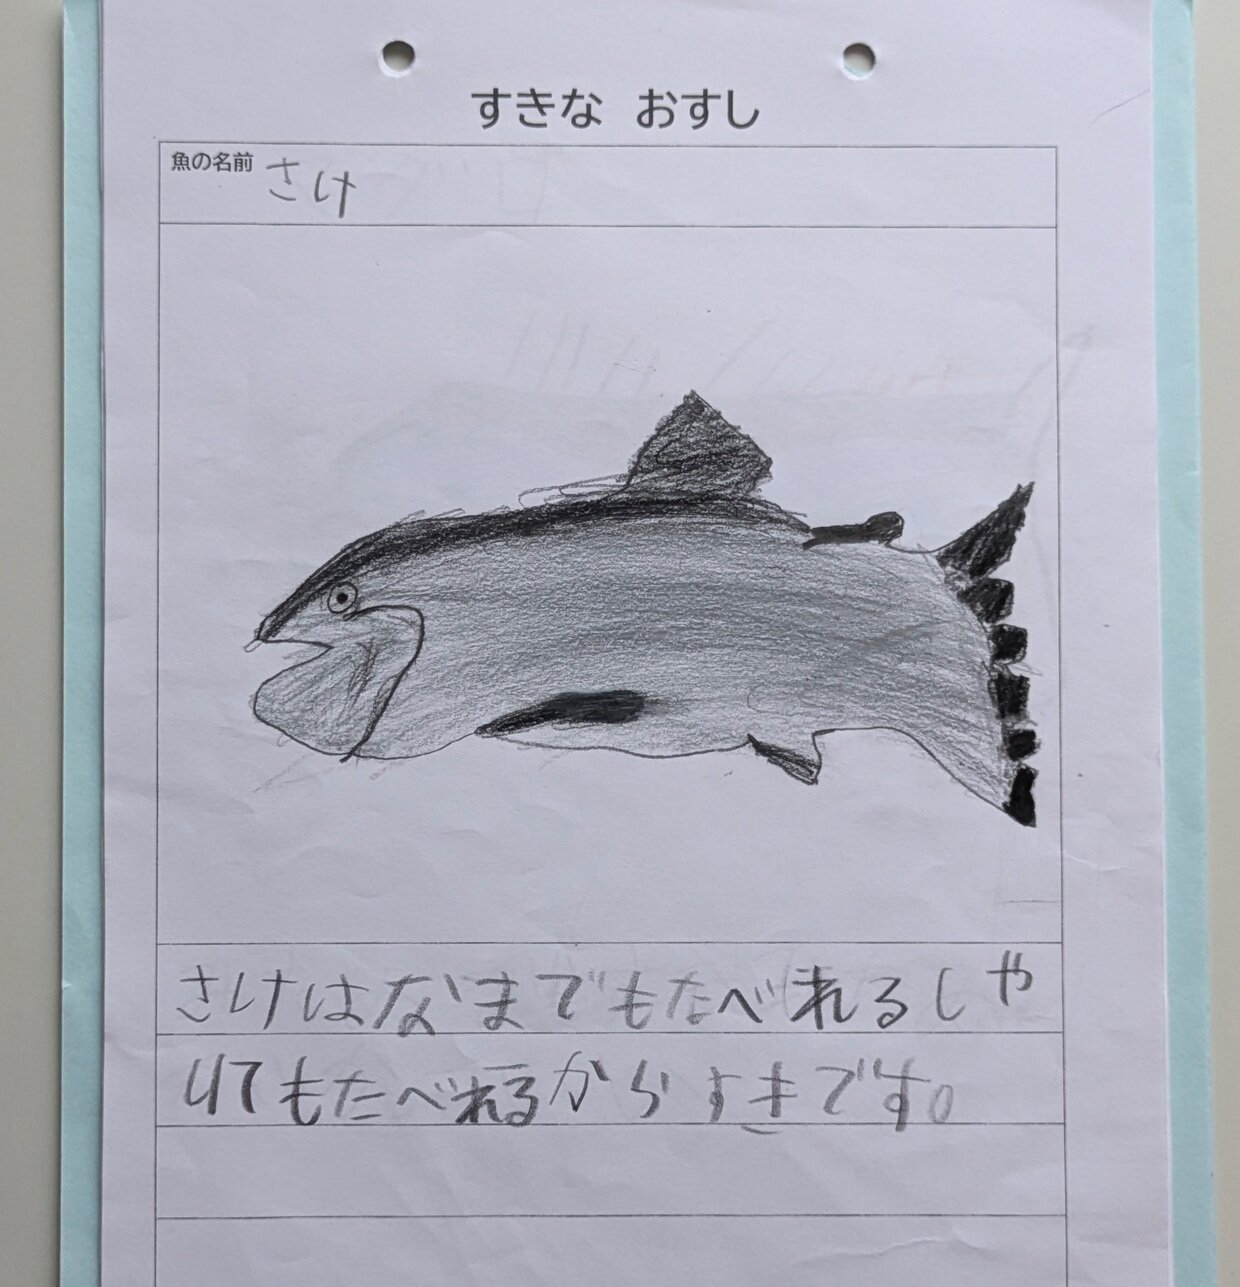 すきな おすし
魚の名前 さけ
さけはなまでもたべれるしや
いてもたべれるからすきです。